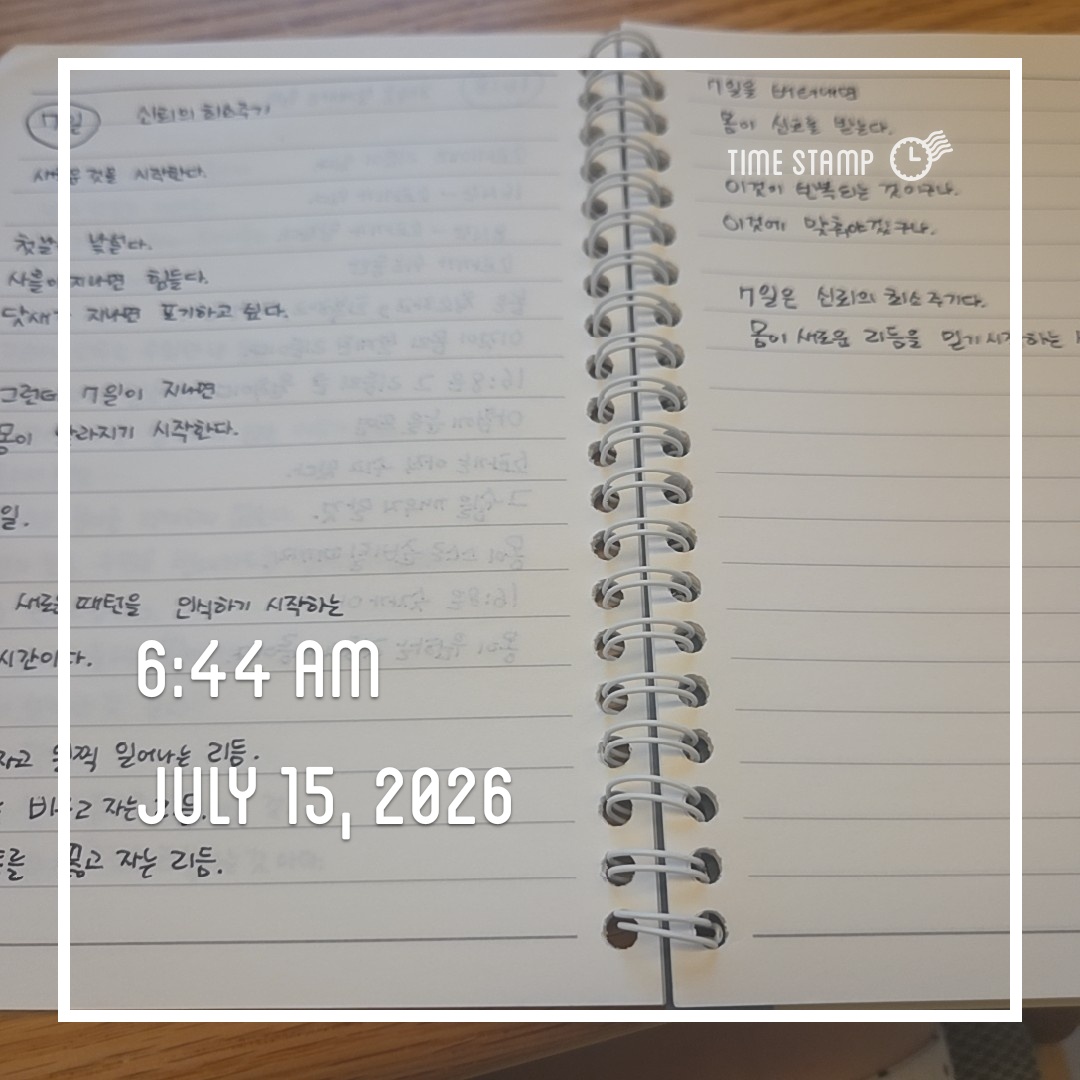 7일 신뢰의 최소주기
새로운 것을 시작한다.
첫날은 낯설다.
사흘이 지나면 힘들다.
닷새가 지나면 포기하고 싶다.
그런데 7일이 지나면
몸이 달라지기 시작한다.
일.
새로운 패턴을 인식하기 시작하는
시간이다.
자고 일찍 일어나는 리듬.
비우고 자는 리듬.
를 끊고 자는 리듬.
7일을 버텨내면
몸이 신호를 받는다.
이것이 반복되는 것이구나.
이것에 맞춰야겠구나.
7일은 신뢰의 최소주기다.
몸이 새로운 리듬을 믿기 시작하는
TIME STAMP
6:44 AM
JULY 15, 2026